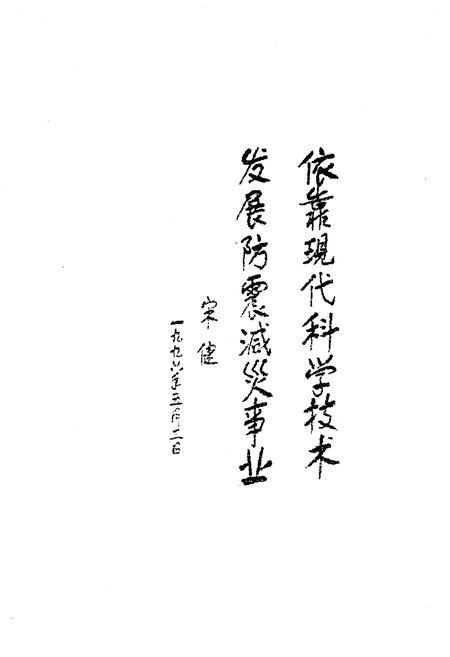 依靠現代科学技术
发展防震減災事业
宋健
一九九六年五月二日